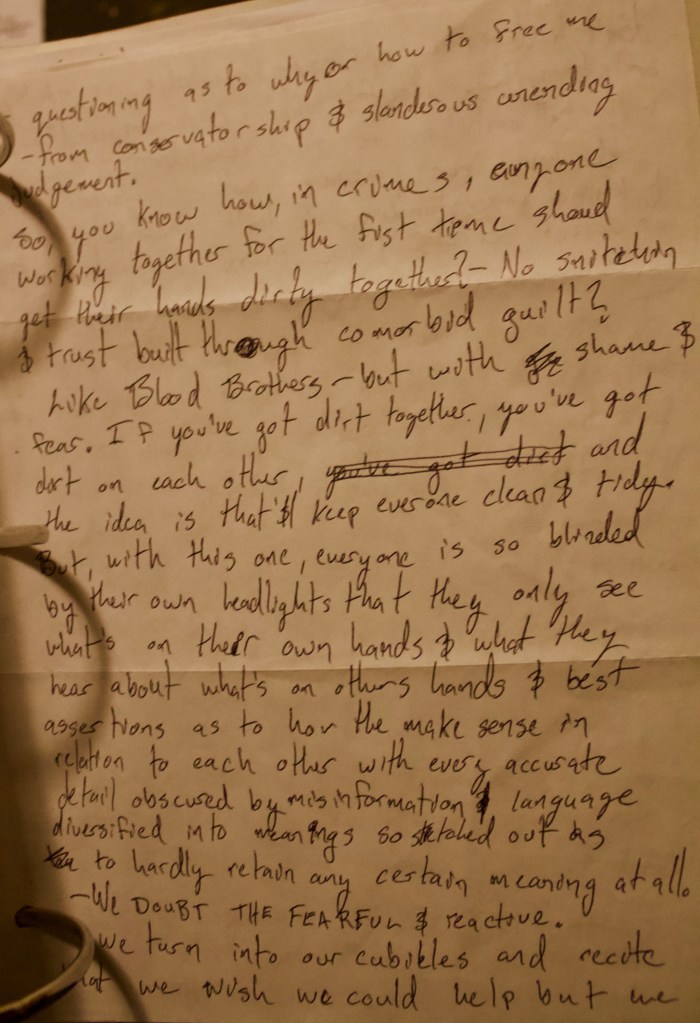 questioning as to why or how to free me
-from conservatorship & slanderous unending
judgement.
So, you know how, in crimes, anyone
working together for the fist time shoud
get their hands dirty together?- No snitchin
& trust built through comorbid guilt?
Like Blood Brothers-but with shame &
fear. If you've got dirt together, you've got
dirt on each other, you've got dirt and
the idea is that'll keep everone clean & tidy.
But, with this one, everyone is so blinded
by their own headlights that they only see
what's on their own hands & what they
hear about what's on others hands & best
assertions as to how the make sense in
relation to each other with every accurate
detail obscured by misinformation & language
diversified into meanings so stetched out as
to hardly retain any certain meaning at all.
-We DOUBT THE FEARFUL & reactive.
we turn into our cubikles and recite
we wish we could help but we